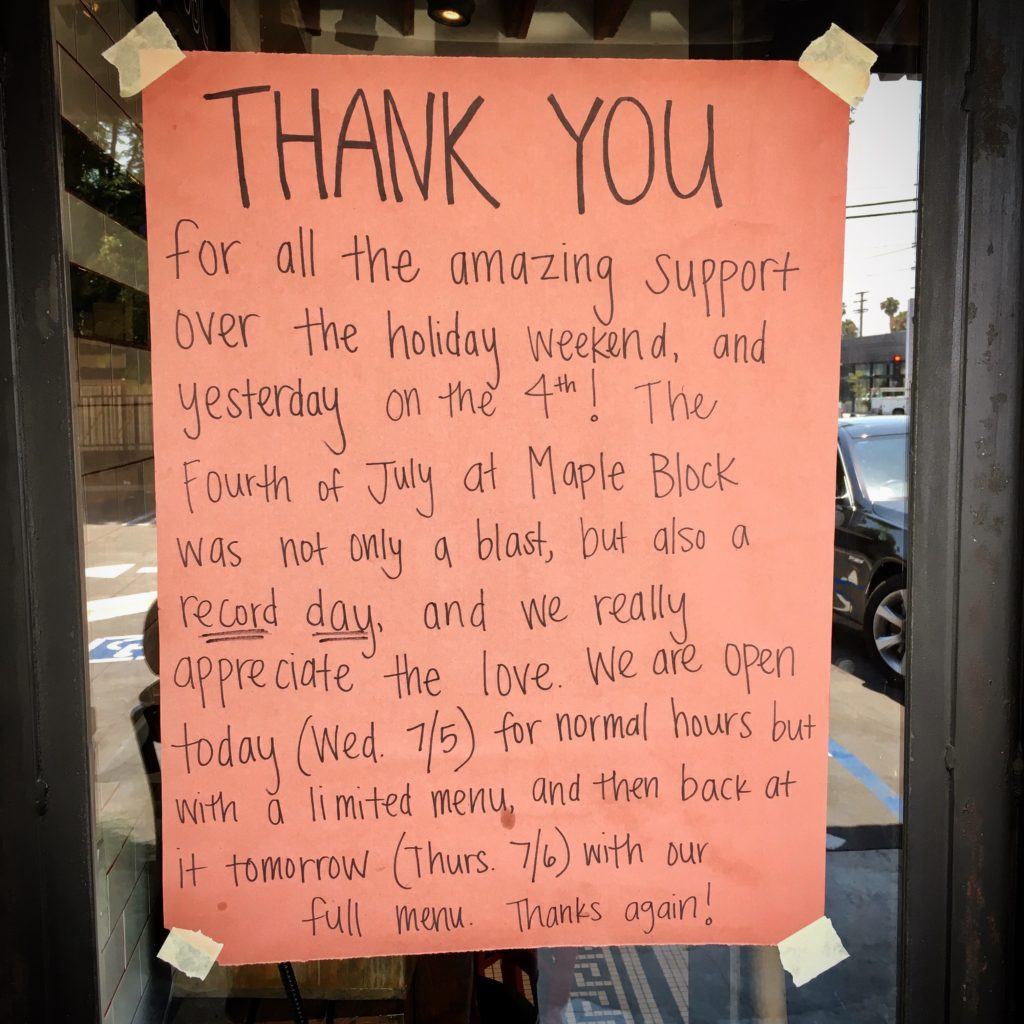 THANK YOU
for all the amazing support
over the holiday weekend, and
yesterday on the 4th! The
Fourth of July at Maple Block
was not only a blast, but also a
record day, and we really
appreciate the love. We are open
today (Wed. 7/5) for normal hours but
with a limited menu, and then back at
it tomorrow (Thurs. 7/6) with our
full menu. Thanks again!